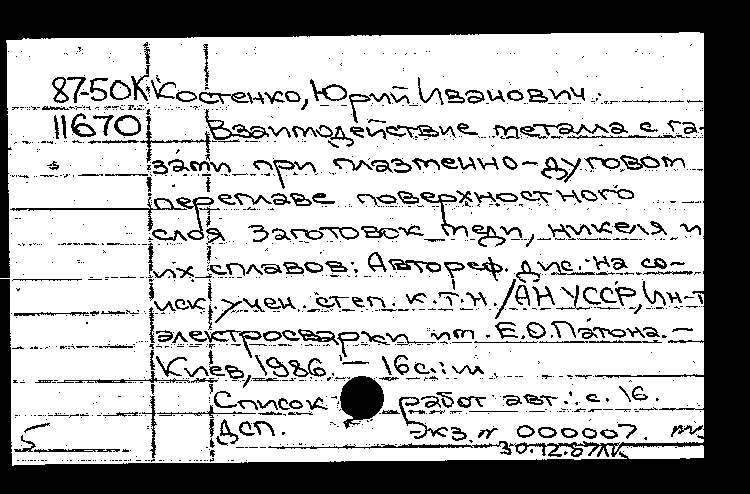 87-50К Костенко, Юрий Иванович.
11670 Взаимодействие металла с га-
зами при плазменно-дуговом
переплаве поверхностного
слоя заготовок меди, никеля и
их сплавов: Автореф. дис. на со-
иск. учен. степ. к.т.н. / АН УССР, Ин-т
электросварки им. Е.О.Патона. -
Киев, 1986. - 16 с.: ил.
Список работ авт.: с. 16.
ДСП. Экз. № 000007.
5 30.12.87